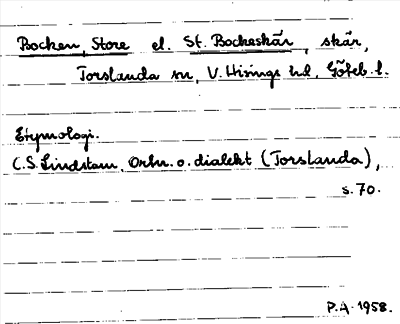 Bocken, Store el. St. Bockeskär, skär,
Torslanda sn, V. Hisings hd, Göteb. l.
Etymologi.
C.S. Lindstam, Ortn. o. dialekt (Torslanda),
s. 70.
P.A. 1958.